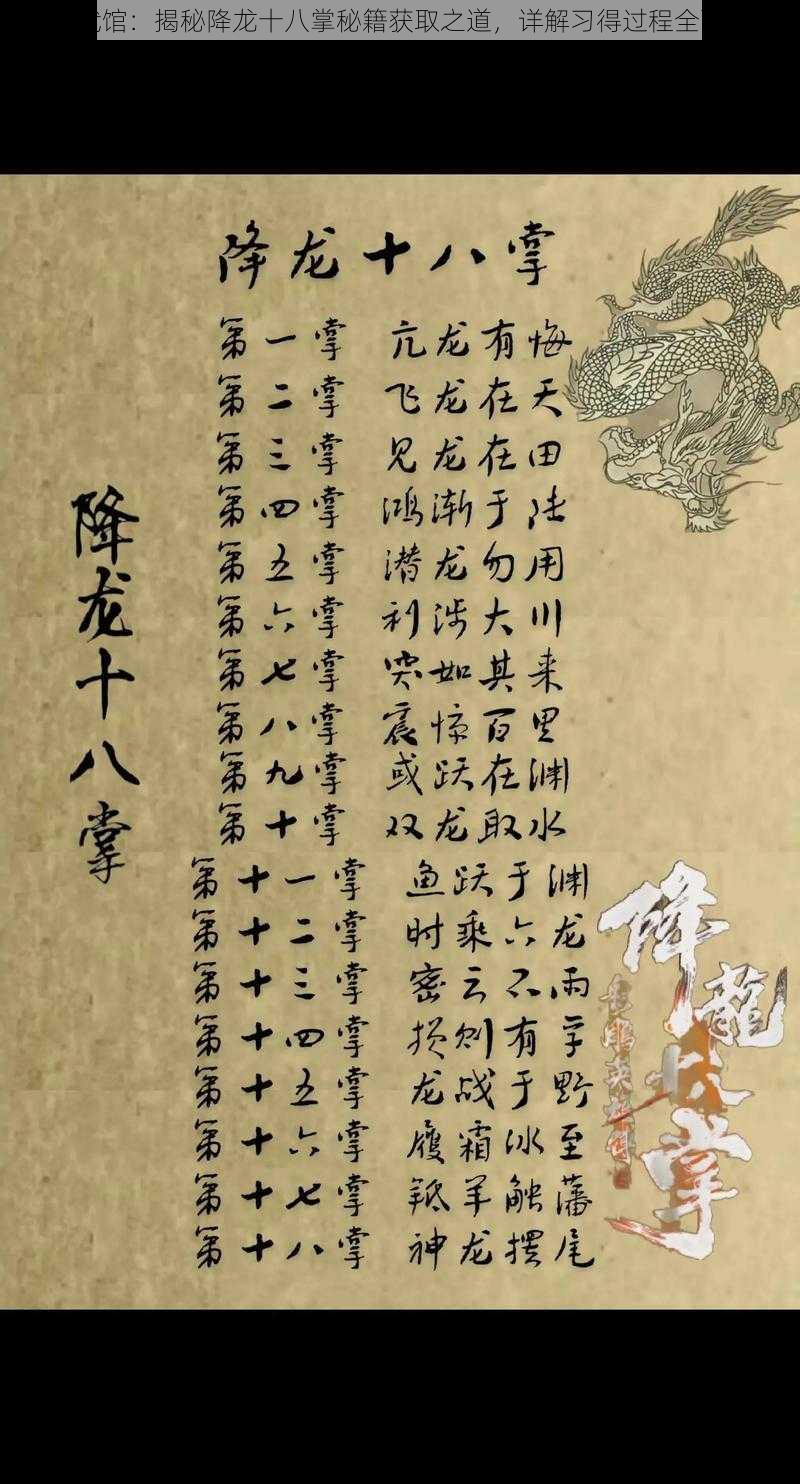 馆：揭秘降龙十八掌秘籍获取之道，详解习得过程全
降龙十八掌
第一掌 亢龙有悔
第二掌 飞龙在天
第三掌 见龙在田
第四掌 鸿渐于陆
第五掌 潜龙勿用
第六掌 利涉大川
第七掌 突如其来
第八掌 震惊百里
第九掌 或跃在渊
第十掌 双龙取水
第十一掌 鱼跃于渊
第十二掌 时乘六龙
第十三掌 密云不雨
第十四掌 损则有孚
第十五掌 龙战于野
第十六掌 履霜冰至
第十七掌 羝羊触藩
第十八掌 神龙摆尾
降龙十八掌
降龍
掌